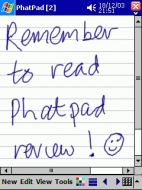 PhatPad [2]
10/12/03
21:51
Remember
to read
Phatpad
review!
New Edit View Tools